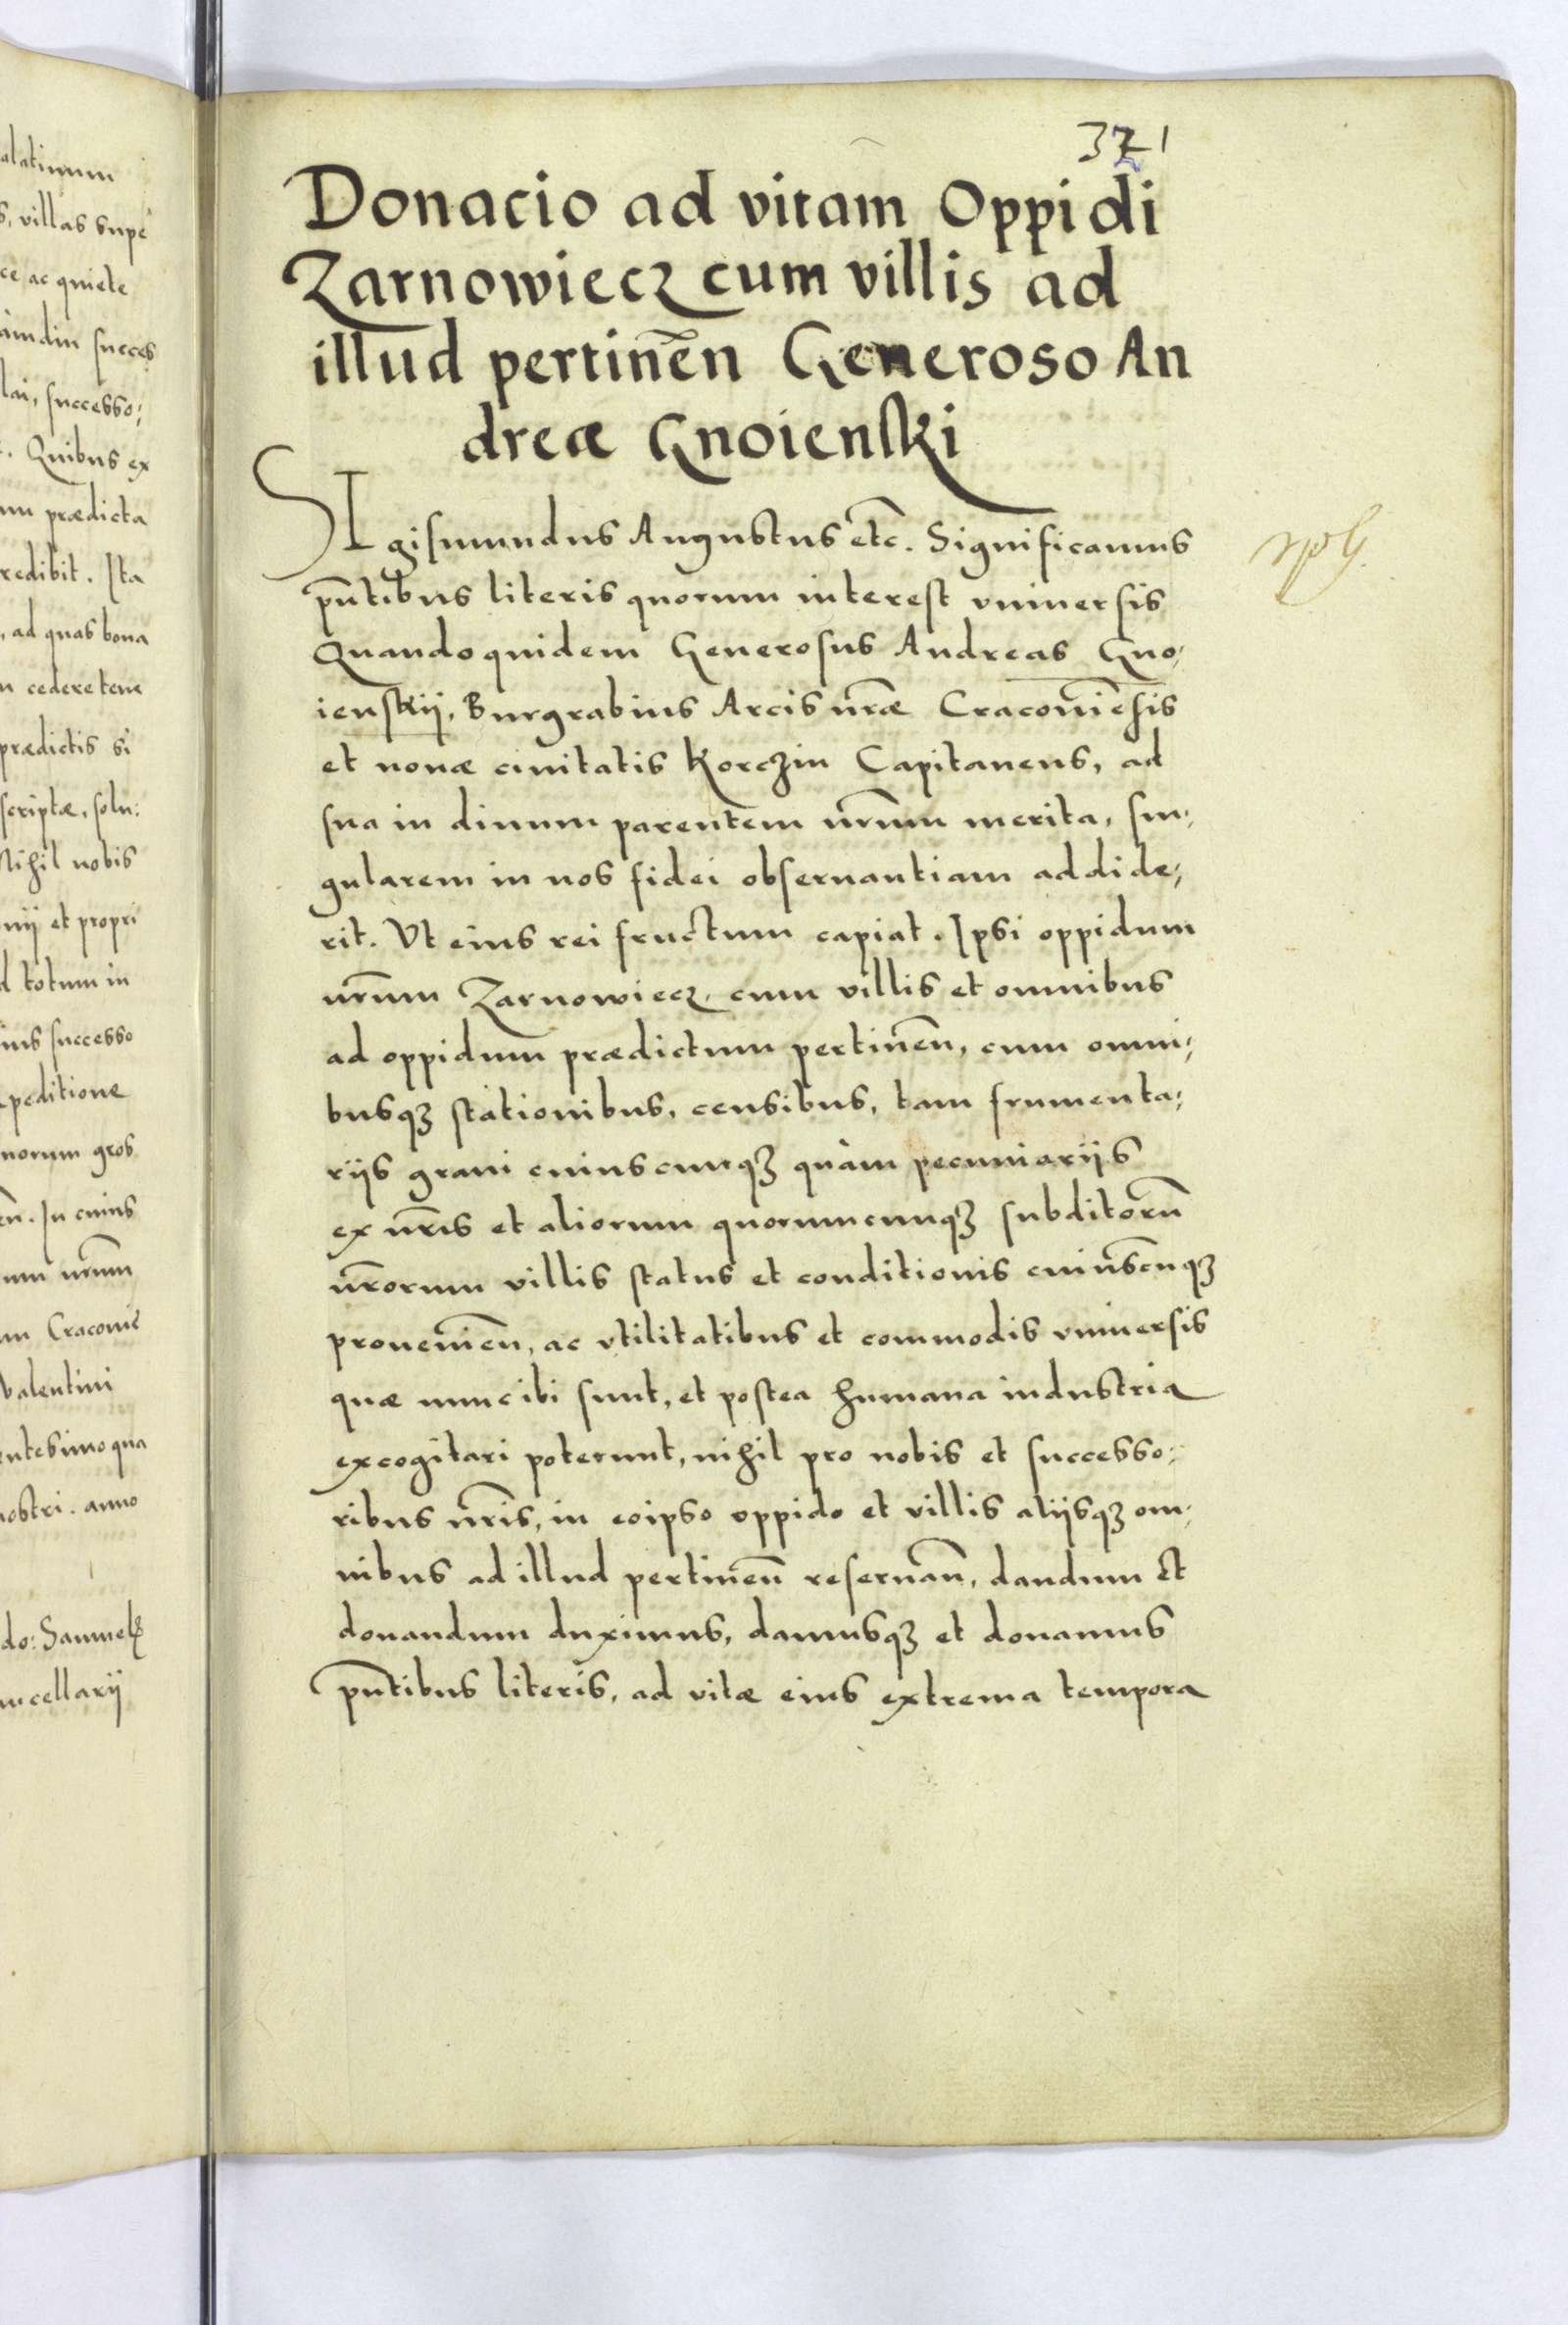 alatinum
s, villas supe
ce, ac quiete
amdiu succes
lai, successo;
. Quibus ex
um prædicta
redibit. Ita
, ad quas bona
n cedere tene
prædictis si
scriptæ, solu:
Nihil nobis
nij et propri
d totum in
ius successo
peditione
norum gros
en. In cuius
um nr̃um
um Cracovie
valentini
entesimo qua
nostri. anno
do: Samuelis
ncellarij
321
Donacio ad vitam Oppidi
Zarnowiecz cum villis ad
illud pertineñ Generoso An
dreæ Gnoienski
SIgismundus Augustus etc̃. Significamus
pñtibus literis quorum interest vniuersis
Quandoquidem Generosus Andreas Gno;
ienskij, Burgrabius Arcis nr̃æ Cracovieñsis
et nouæ ciuitatis Korczin Capitaneus, ad
sua in diuum parentem nr̃um merita, sin;
gularem in nos fidei obseruantiam addide;
rit. Vt eius rei fructum capiat. Ipsi oppidum
nr̃um Zarnowiecz, cum villis et omnibus
ad oppidum prædictum pertineñ, cum omni;
busqꝫ stationibus, censibus, tam frumenta;
rijs grani cuiuscunqꝫ quàm pecuniarijs
ex nr̃is et aliorum quorumcunqꝫ subditorũ
nr̃orum villis status et conditionis cuiuscũqꝫ
proueniеñ, ac vtilitatibus et commodis vniuersis
quæ nunc ibi sunt, et postea humana industria
excogitari poterunt, nihil pro nobis et successo;
ribus nr̃is, in eoipso oppido et villis alijsqꝫ om;
nibus ad illud pertineñ reseruañ, dandum et
donandum duximus, damusqꝫ et donamus
pñtibus literis, ad vitæ eius extrema tempora